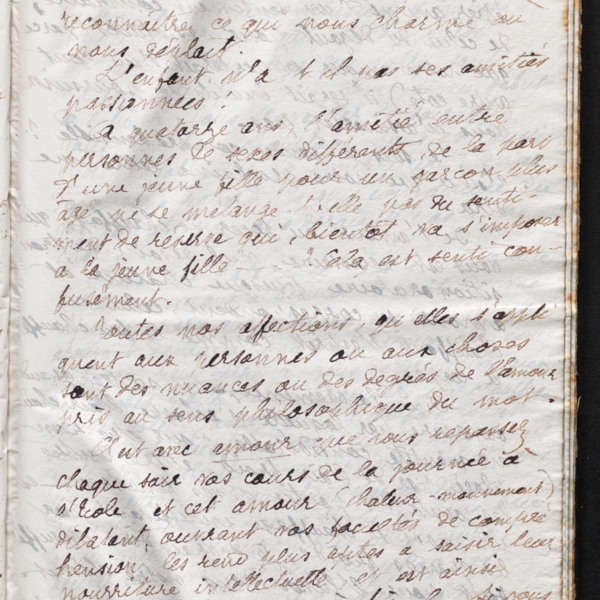 reconnaître ce qui nous charme ou
nous déplait.
L'enfant n'a-t-il pas ses amitiés
passionnées !
A quatorze ans l'amitié entre
personnes de sexes différents, de la part
d'une jeune fille pour un garçon plus
âgé ne se mélange-t-elle pas du senti-
ment de réserve qui, bientôt va s'imposer
à la jeune fille — Cela est senti con-
fusément.
Toutes nos affections, qu'elles s'appli
quent aux personnes ou aux choses
sont des nuances ou des degrés de l'amour
pris au sens philosophique du mot.
C'est avec amour que vous repassez
chaque soir vos cours de la journée à
l'Ecole et cet amour (chaleur-mouvement)
dilatant, ouvrant vos facultés de compré
hension, les rend plus aptes à saisir leur
nourriture intellectuelle, et c'est ainsi